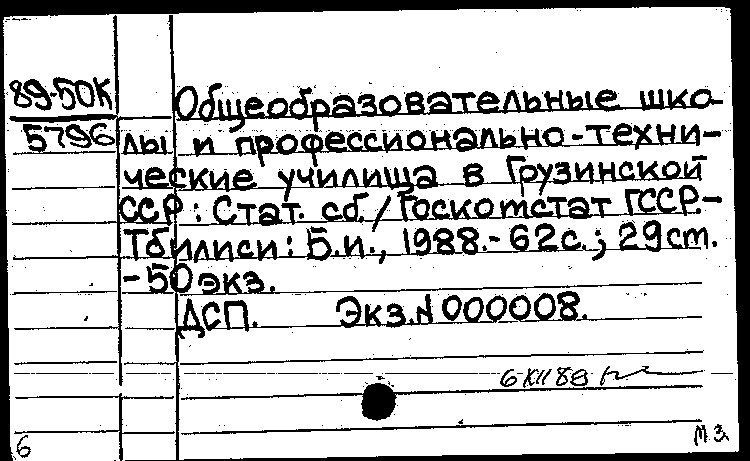 89-50К
5796
Общеобразовательные шко-
лы и профессионально-техни-
ческие училища в Грузинской
ССР: Стат. сб. / Госкомстат ГССР.-
Тбилиси: Б.и., 1988.- 62с.; 29см.
-50экз.
ДСП. Экз.N 000008.
6 XII 89
6
М.З.